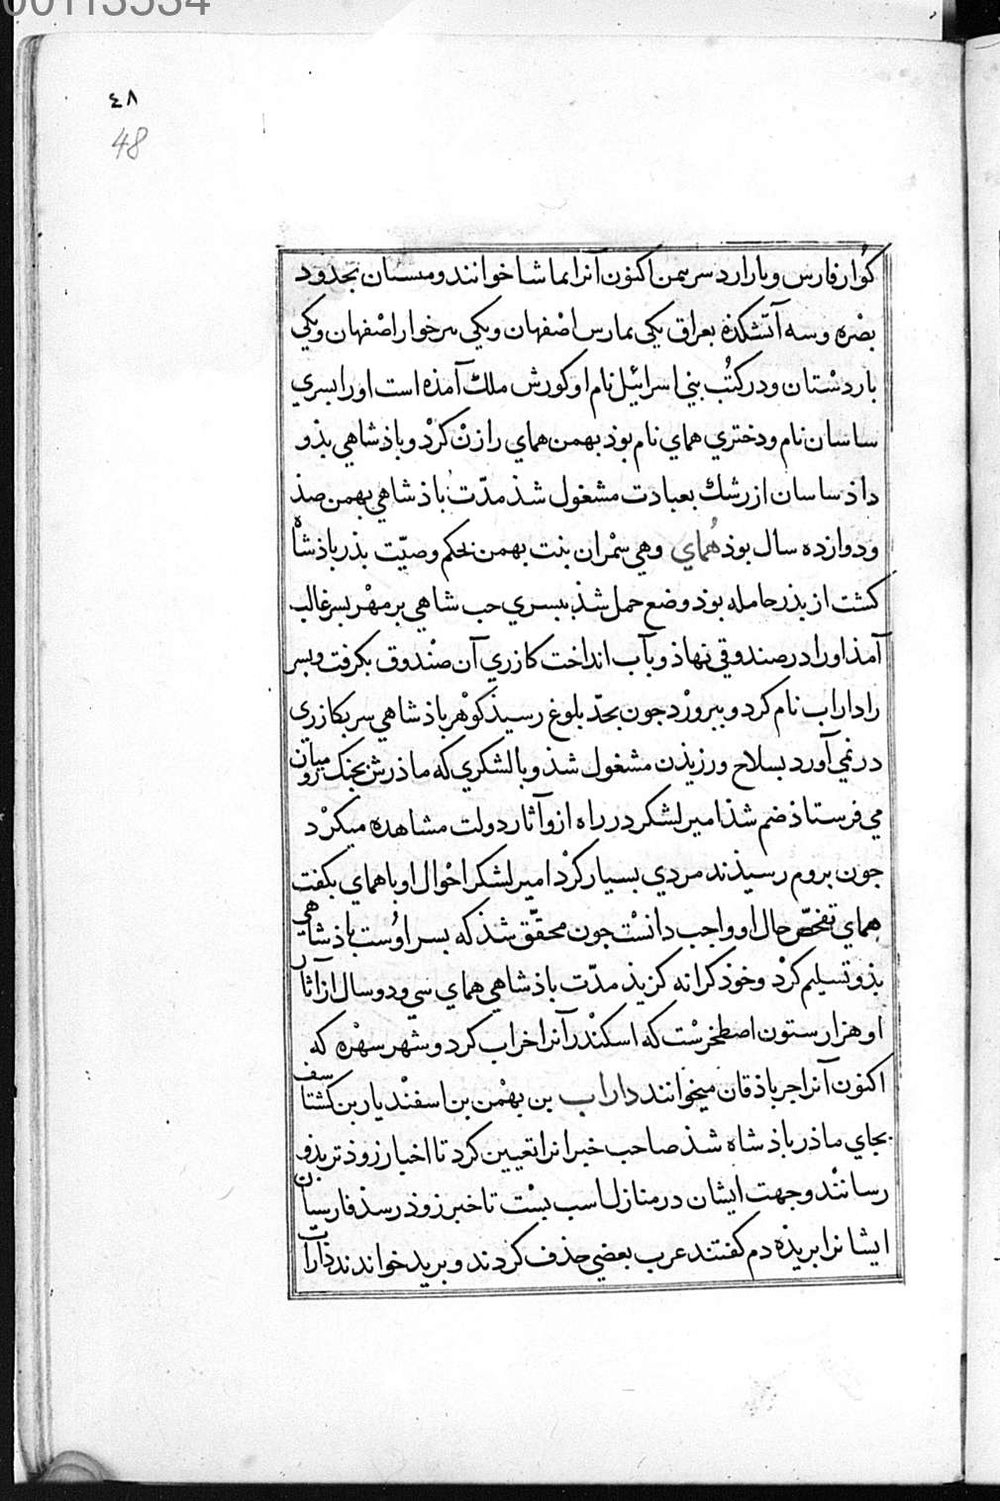 00113534
٤٨
48
كوار فارس و باراردسرىهمن اكنون آنرا بماشا خوانند وميسان بحدود
بصْره وسه آتشكذه بعراق يكى بمارس اصْفهان ويكى سرخوار اصْفهان ويكى
باردسْتان ودر كتُب بني اسرائيل نام او كورش ملك آمذه است اورا بسري
ساسان نام ودختري هماي نام بوذ بهمن هماي را زنْ كردْ وباذشاهي بذو
داذ ساسان از رشك بعبادت مشغول شذ مدّت باذشاهي بهمن صذ
ودوازده سال بوذ هُماي وهي شمْران بنت بهمن بحكم وصيّت بذر باذشاه
كشت از بذر حامله بوذ وضع حمل شذ ببسري حب شاهي بر مهْر بسر غالب
آمذ اورا در صندوقي نهاذ وبآب انداخت كازري آن صنْدوق بكرفت وبسر
را داراب نام كرد وببرورْد جون بحدّ بلوغ رسيذ كوْهر باذشاهي سر بكازرى
در نمي آورد بسلاح ورزيذن مشغول شذ وبا لشكري كه ماذرش بجنك روميان
مي فرستاذ ضم شذ امير لشكر در راه ازو آثار دولت مشاهده ميكرْد
جون بروم رسيذند مردي بسيار كردْ امير لشكر احْوال او با هماي بكفت
هماي تفحّص حال او واجب دانسْت جون محقّق شذ كه بسر اوُست باذشاهى
بذو تسليم كردْ وخوذ كرانه كزيذ مدّت باذشاهي هماي سي ودو سال از آثار
او هزار ستون اصطخرسْت كه اسكنْدر آنرا خراب كرد وشهر سهْره كه
اكنون آنرا جرباذقان ميخوانند داراب بن بهْمن بن اسفنْديار بن كشتاسف
بجاي ماذر باذشاه شذ صاحب خبرانرا تعيين كرد تا اخبار زوذتر بذو
رساننْد وجهت ايشان در منازل اسب بسْت تا خبر زوذ رسذ فارسيان
ايشانرا بريذه دم كفتند عرب بعضي حذف كردند وبريد خواندند داراب